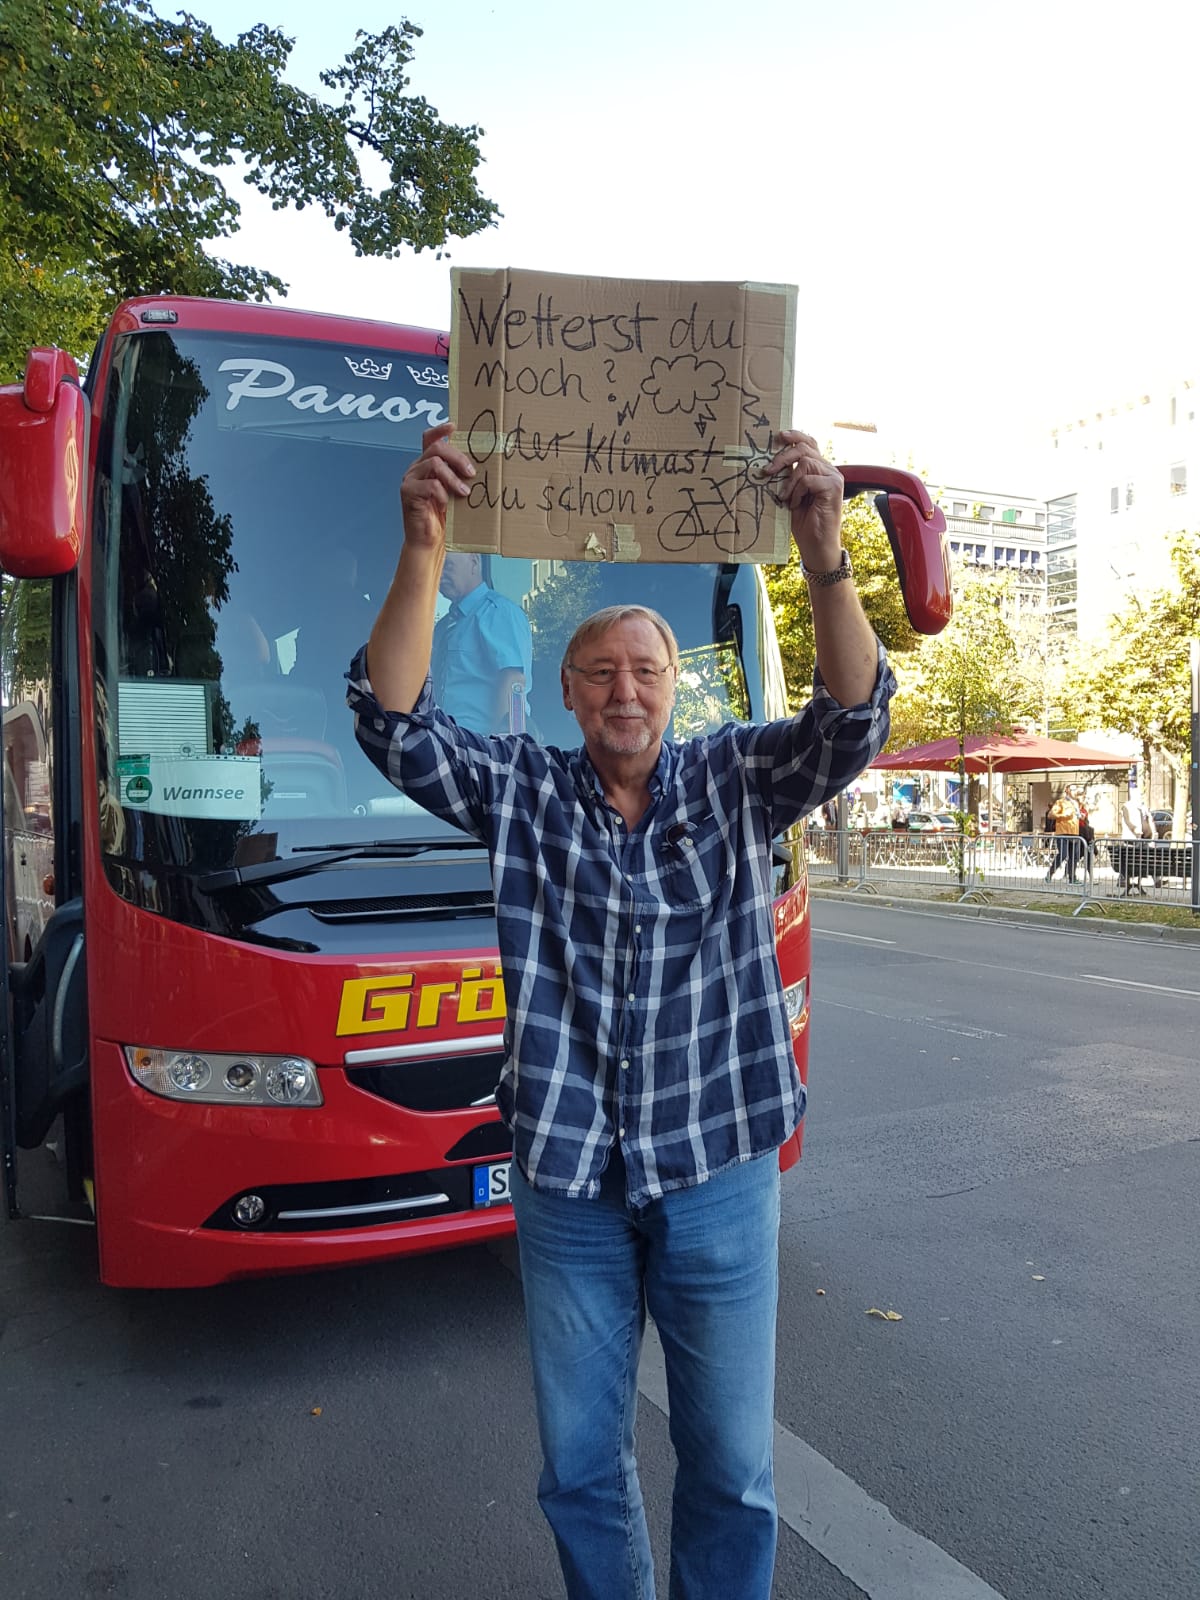 Wetterst du
noch?
Oder Klimast
du schon?
Panor
Wannsee
Grö
D
S